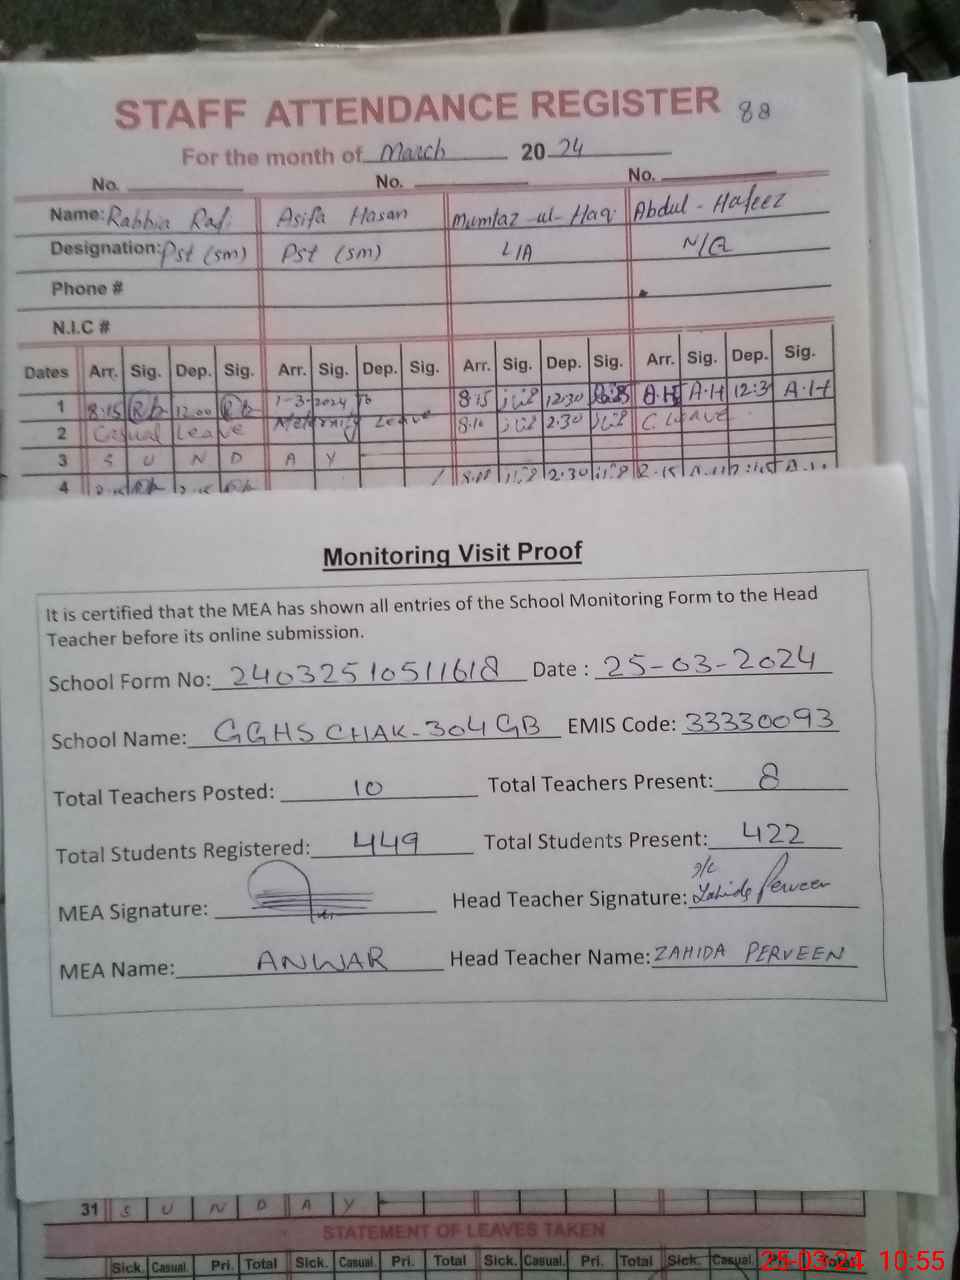 STAFF ATTENDANCE REGISTER 88
For the month of March 20 24
No. No. No.
Name: Rabbia Rafi Asifa Hasan Mumtaz-ul-Haq Abdul-Hafeez
Designation: Pst (sm) Pst (sm) L/A N/Q
Phone #
N.I.C #
Dates Arr. Sig. Dep. Sig. Arr. Sig. Dep. Sig. Arr. Sig. Dep. Sig. Arr. Sig. Dep. Sig.
1 8:15 Rb 12:00 Rb 1-3-2024 to 8:15 12:30 A.H A.H 12:3 A.H
2 Casual Leave Maternity Leave 8:10 2:30 C Leave
3 S U N D A Y
4 2:30
Monitoring Visit Proof
It is certified that the MEA has shown all entries of the School Monitoring Form to the Head
Teacher before its online submission.
School Form No: 24032510511618 Date : 25-03-2024
School Name: GGHS CHAK-304 GB EMIS Code: 33330093
Total Teachers Posted: 10 Total Teachers Present: 8
Total Students Registered: 449 Total Students Present: 422
MEA Signature: Head Teacher Signature: Zahida Perveen
MEA Name: ANWAR Head Teacher Name: ZAHIDA PERVEEN
31 S U N D A Y
STATEMENT OF LEAVES TAKEN
Sick. Casual. Pri. Total Sick. Casual. Pri. Total Sick. Casual. Pri. Total Sick. Casual. Pri. Total
25-03-24 10:55